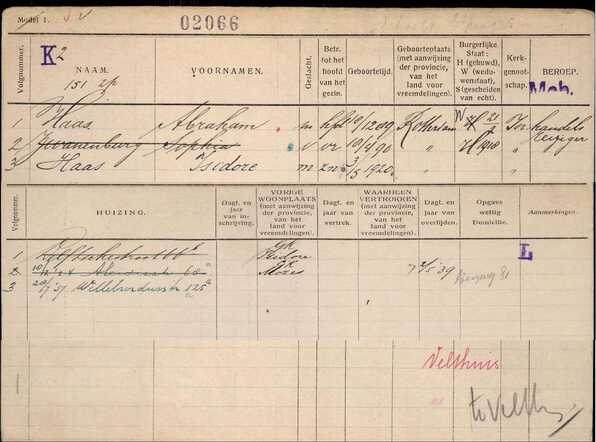 Model 1.
02066
K2
Volgnummer.
NAAM.
VOORNAMEN.
Geslacht.
Betr. tot het hoofd van het gezin.
Geboortetijd.
Geboorteplaats (met aanwijzing der provincie, van het land voor vreemdelingen).
Burgerlijke Staat: H (gehuwd), W (weduwenstaat), S (gescheiden van echt).
Kerkgenootschap.
BEROEP.
Moh.
151
1 Haas Abraham m hfd 10/12 09 Rotterdam W H 21/2 Isr. handels
2 Kranenburg Sophia v vr 10/4 90 " H 1918 " reiziger
3 Haas Isidore m zn 3/5 1920 " "
Volgnummer.
HUIZING.
Dagt. en jaar van inschrijving.
VORIGE WOONPLAATS (met aanwijzing der provincie, van het land voor vreemdelingen).
Dagt. en jaar van vertrek.
WAARHEEN VERTROKKEN (met aanwijzing der provincie, van het land voor vreemdelingen).
Dagt. en jaar van overlijden.
Opgave wettig Domicilie.
Aanmerkingen.
1
L
Isidore
2 Mozes 2/5 39
3 20/1 '37 Willebrordusstr 125a
Velthuis